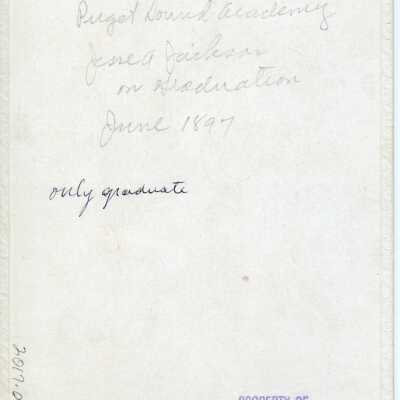 Puget Sound Academy
Jesse A Jackson
on Graduation
June 1897
only graduate
2017.0
PROPERTY OF